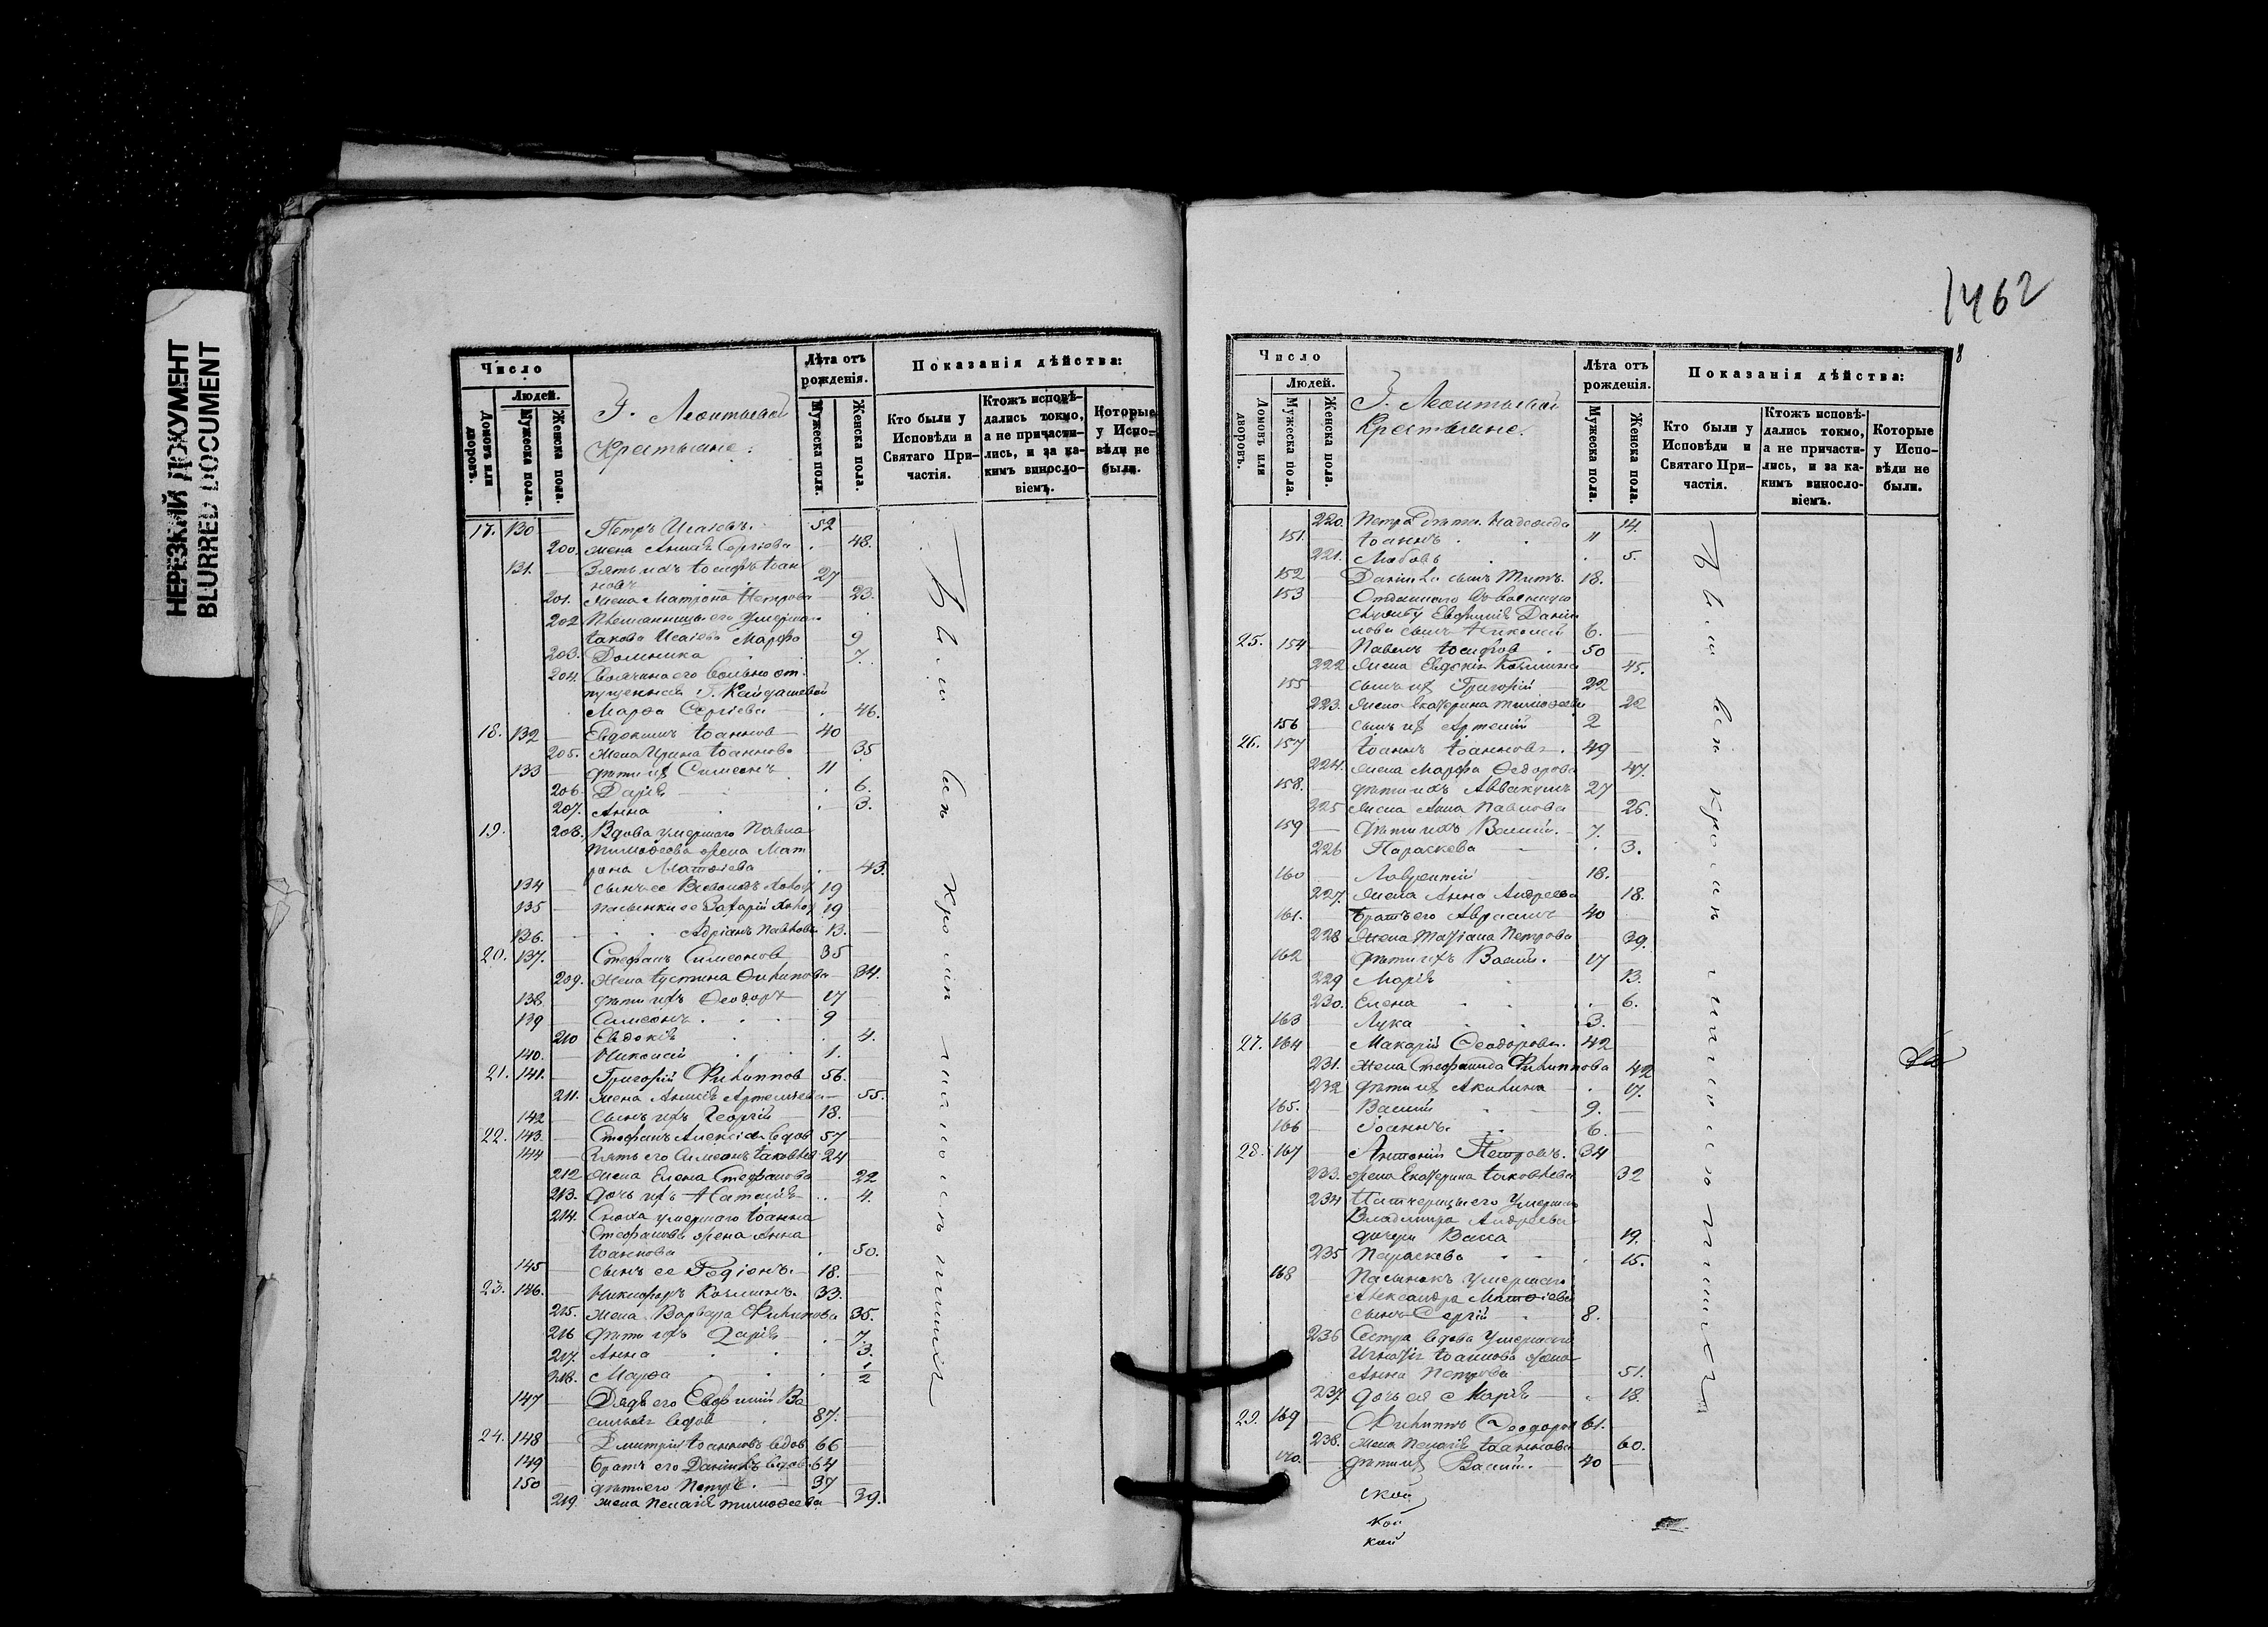 НЕРЕЗКИЙ ДОКУМЕНТ
BLURRED DOCUMENT
Число
Людей.
Домовъ или дворовъ.
Мужеска пола.
Женска пола.
Г. Леонтьевой
Крестьяне:
Лѣта отъ рожденія.
Мужеска пола.
Женска пола.
Показанія дѣйства:
Кто были у Исповѣди и Святаго Причастія.
Ктожъ исповѣдались токмо, а не причастились, и за какимъ винословіемъ.
Которые у Исповѣди не были.
17. 130 — Петръ Исаковъ. 52
200. жена Анна Сергіева 48.
131. — Зять ихъ Іосифъ Іоан
новъ 27
201. Жена Матрона Петрова 23.
202 Племянницы его умершаго
Іакова Исаіева Марфа 9
203. Домника 7.
204. Своячина его вольноот
пущенная Г. Кайдашевой
Марфа Сергіева 46.
18. 132 — Евдокимъ Іоаннов 40
205. Жена Ирина Іоаннова 35
133 — дѣти их Симеонъ 11
206. Дарія 6.
207. Анна 3.
19. 208. Вдова умершаго Павла
Тимофеева жена Мат
рона Матфіева 43.
134 — сынъ ее 19
135 — пасынки ее Захарій 19
136. Адріанъ Павлова 13.
20. 137. — Стефанъ Симеонов 35
209. Жена Іустина Филипова 34.
138 дѣти ихъ Феодоръ 17
139 — Симеонъ 9
210 Евдокія 4.
140. — Николай 1.
21. 141. — Григорій Филиппов 56.
211. Жена Анисія Артемьева 55.
142 — Сынъ ихъ Георгій 18.
22. 143. — Стефанъ Алексіев вдов 57
144 — Зять его Симеонъ Іаковлев 24
212 Жена Елена Стефанова 22
213. Дочь ихъ Наталія 4.
214. Сноха умершаго Іоанна
Стефанова жена Анна
Іоаннова 50.
145 сынъ ее Родіонъ. 18.
23. 146. — Никифоръ Козминъ. 33.
215. Жена Варвара Филипова 35.
216 Дѣти ихъ Дарія 7.
217. Анна 3.
218. Марфа 1/2
147 — Дядя его Евфимій Ва
сильев вдов 87.
24. 148 — Дмитрій Іоанновъ вдов 66
149 — братъ его Даніилъ вдов 64
150 — дѣти его Петръ. 37
219 жена Пелагія Тимофеева 39.
Всѣ
1462
8
Число
Людей.
Домовъ или дворовъ.
Мужеска пола.
Женска пола.
Г. Леонтьевой
Крестьяне.
Лѣта отъ рожденія.
Мужеска пола.
Женска пола.
Показанія дѣйства:
Кто были у Исповѣди и Святаго Причастія.
Ктожъ исповѣдались токмо, а не причастились, и за какимъ винословіемъ.
Которые у Исповѣди не были.
220. Петра дѣти Надежда 14.
151. Іоаннъ 11
221. Любовь 5.
152 Даніила сынъ Титъ. 18.
153 Отданнаго въ военную
службу Евфимія Даніи
лова сынъ Николай 6.
25. 154 — Павелъ Іосифов 50
222 Жена Евдокія Козмина 45.
155 — сынъ их Григорій 22
223. Жена Екатерина Тимофеева 22
156 — сынъ их Артемій 2
26. 157 Іоаннъ Іоанновъ. 49
224. Жена Марфа Феодорова 47.
158. дѣти ихъ Аввакумъ 27
225 Жена Анна Павлова 26.
159 — дѣти ихъ Васили. 7.
226 Параскева 3.
160 Лаврентій 18.
227. Жена Анна Андреева 18.
161. братъ его Авраамъ 40
228 Жена Татіана Петрова 39.
162 Дѣти ихъ Васили. 17
229 Марія 13.
230. Елена 6.
163 Лука 3.
27. 164 — Макарій Феодоровъ. 42
231. Жена Стефанида Филиппова 42
232 дѣти их Акилина 17.
165. — Василій 9.
166 Іоаннъ. 6.
28. 167 Антоній Петровъ. 34
233. жена Екатерина Іаковлева 32
234 Патчерицы его умершаго
Владимира Андреева
дочери Васса 19.
235 Параскева 15.
168 Пасынокъ умершаго
Александра Матфіева
сынъ Сергій 8.
236 Сестра вдова умершаго
Игнатія Іоаннова жена
Анна Петрова 51.
237 дочь ея Марія 18.
29. 169 — Филиппъ Феодоров 61.
238. жена Пелагія Іоаннова 60.
170. дѣти их Васили. 40
ской
кой
кой